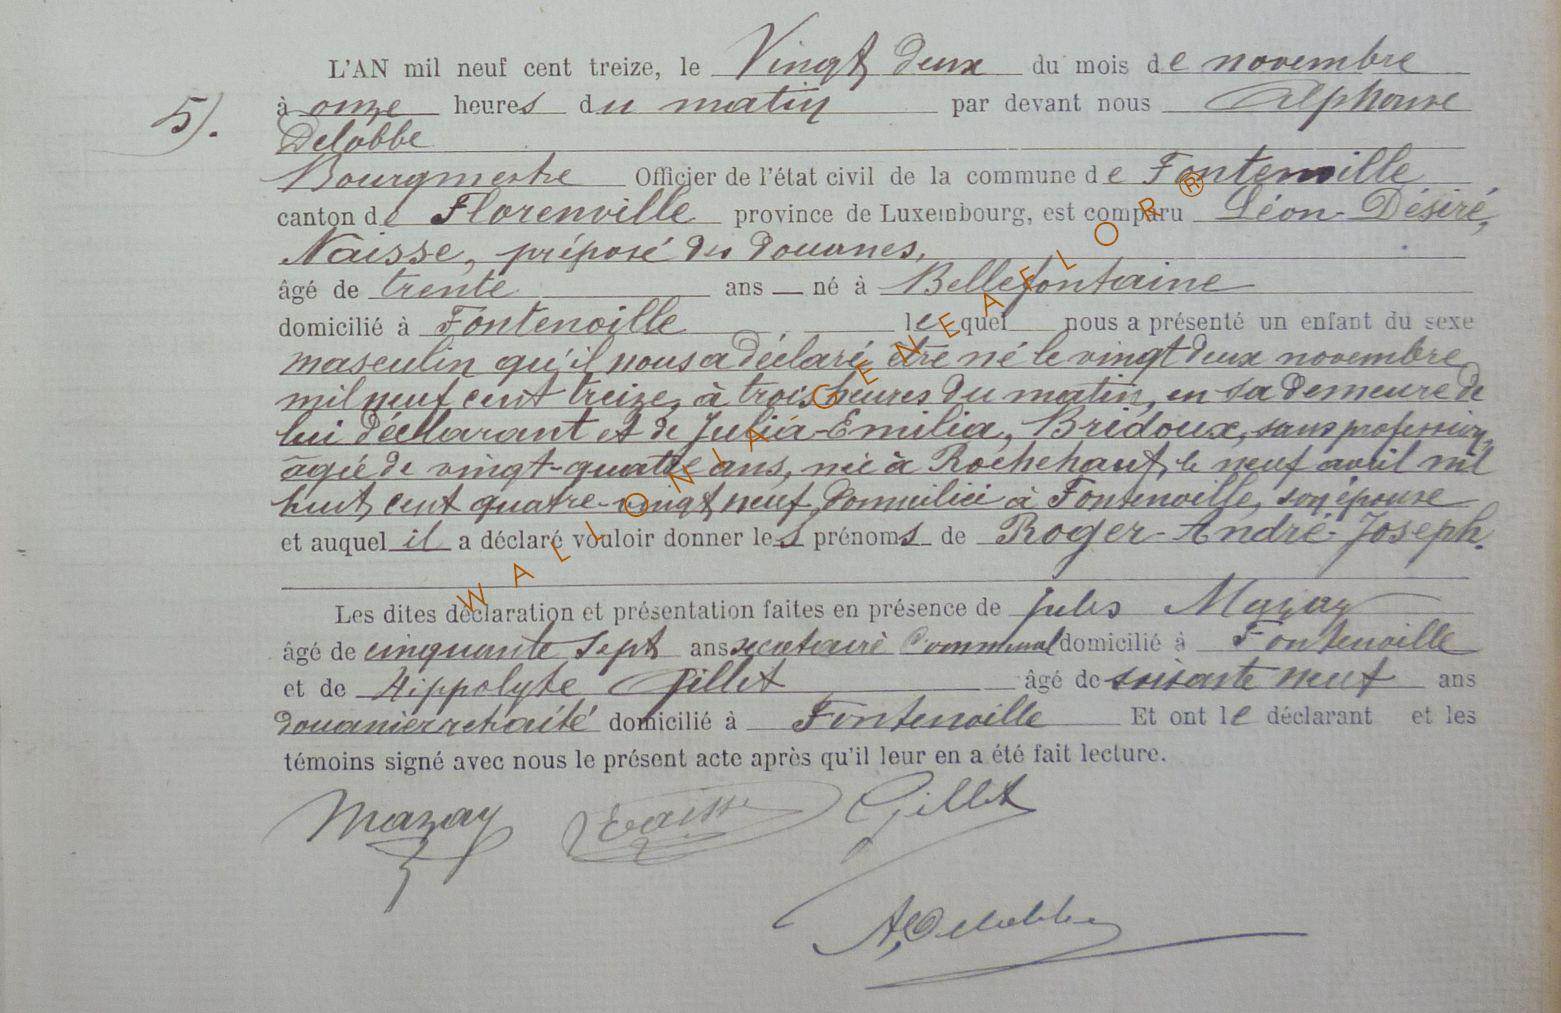 L'AN mil neuf cent treize, le Vingt deux du mois de novembre
5). à onze heures du matin par devant nous Alphonse
Delobbe
Bourgmestre Officier de l'état civil de la commune de Fontenoille
canton de Florenville province de Luxembourg, est comparu Léon-Désiré,
Naisse, préposé des douanes,
âgé de trente ans né à Bellefontaine
domicilié à Fontenoille lequel nous a présenté un enfant du sexe
masculin qu'il nous a déclaré être né le vingt deux novembre
mil neuf cent treize, à trois heures du matin, en sa demeure de
lui déclarant et de Julia-Emilia, Bridoux, sans profession,
âgée de vingt-quatre ans, née à Rochehaut, le neuf avril mil
huit cent quatre-vingt neuf, domiciliée à Fontenoille, son épouse
et auquel il a déclaré vouloir donner les prénoms de Roger-André-Joseph.
Les dites déclaration et présentation faites en présence de Jules Mazay
âgé de cinquante sept ans secrétaire Communal domicilié à Fontenoille
et de Hippolyte Gillet âgé de soixante neuf ans
douanier retraité domicilié à Fontenoille Et ont le déclarant et les
témoins signé avec nous le présent acte après qu'il leur en a été fait lecture.
Mazay Naisse Gillet
A. Delobbe
WALLONIA GENEAFLOR ®